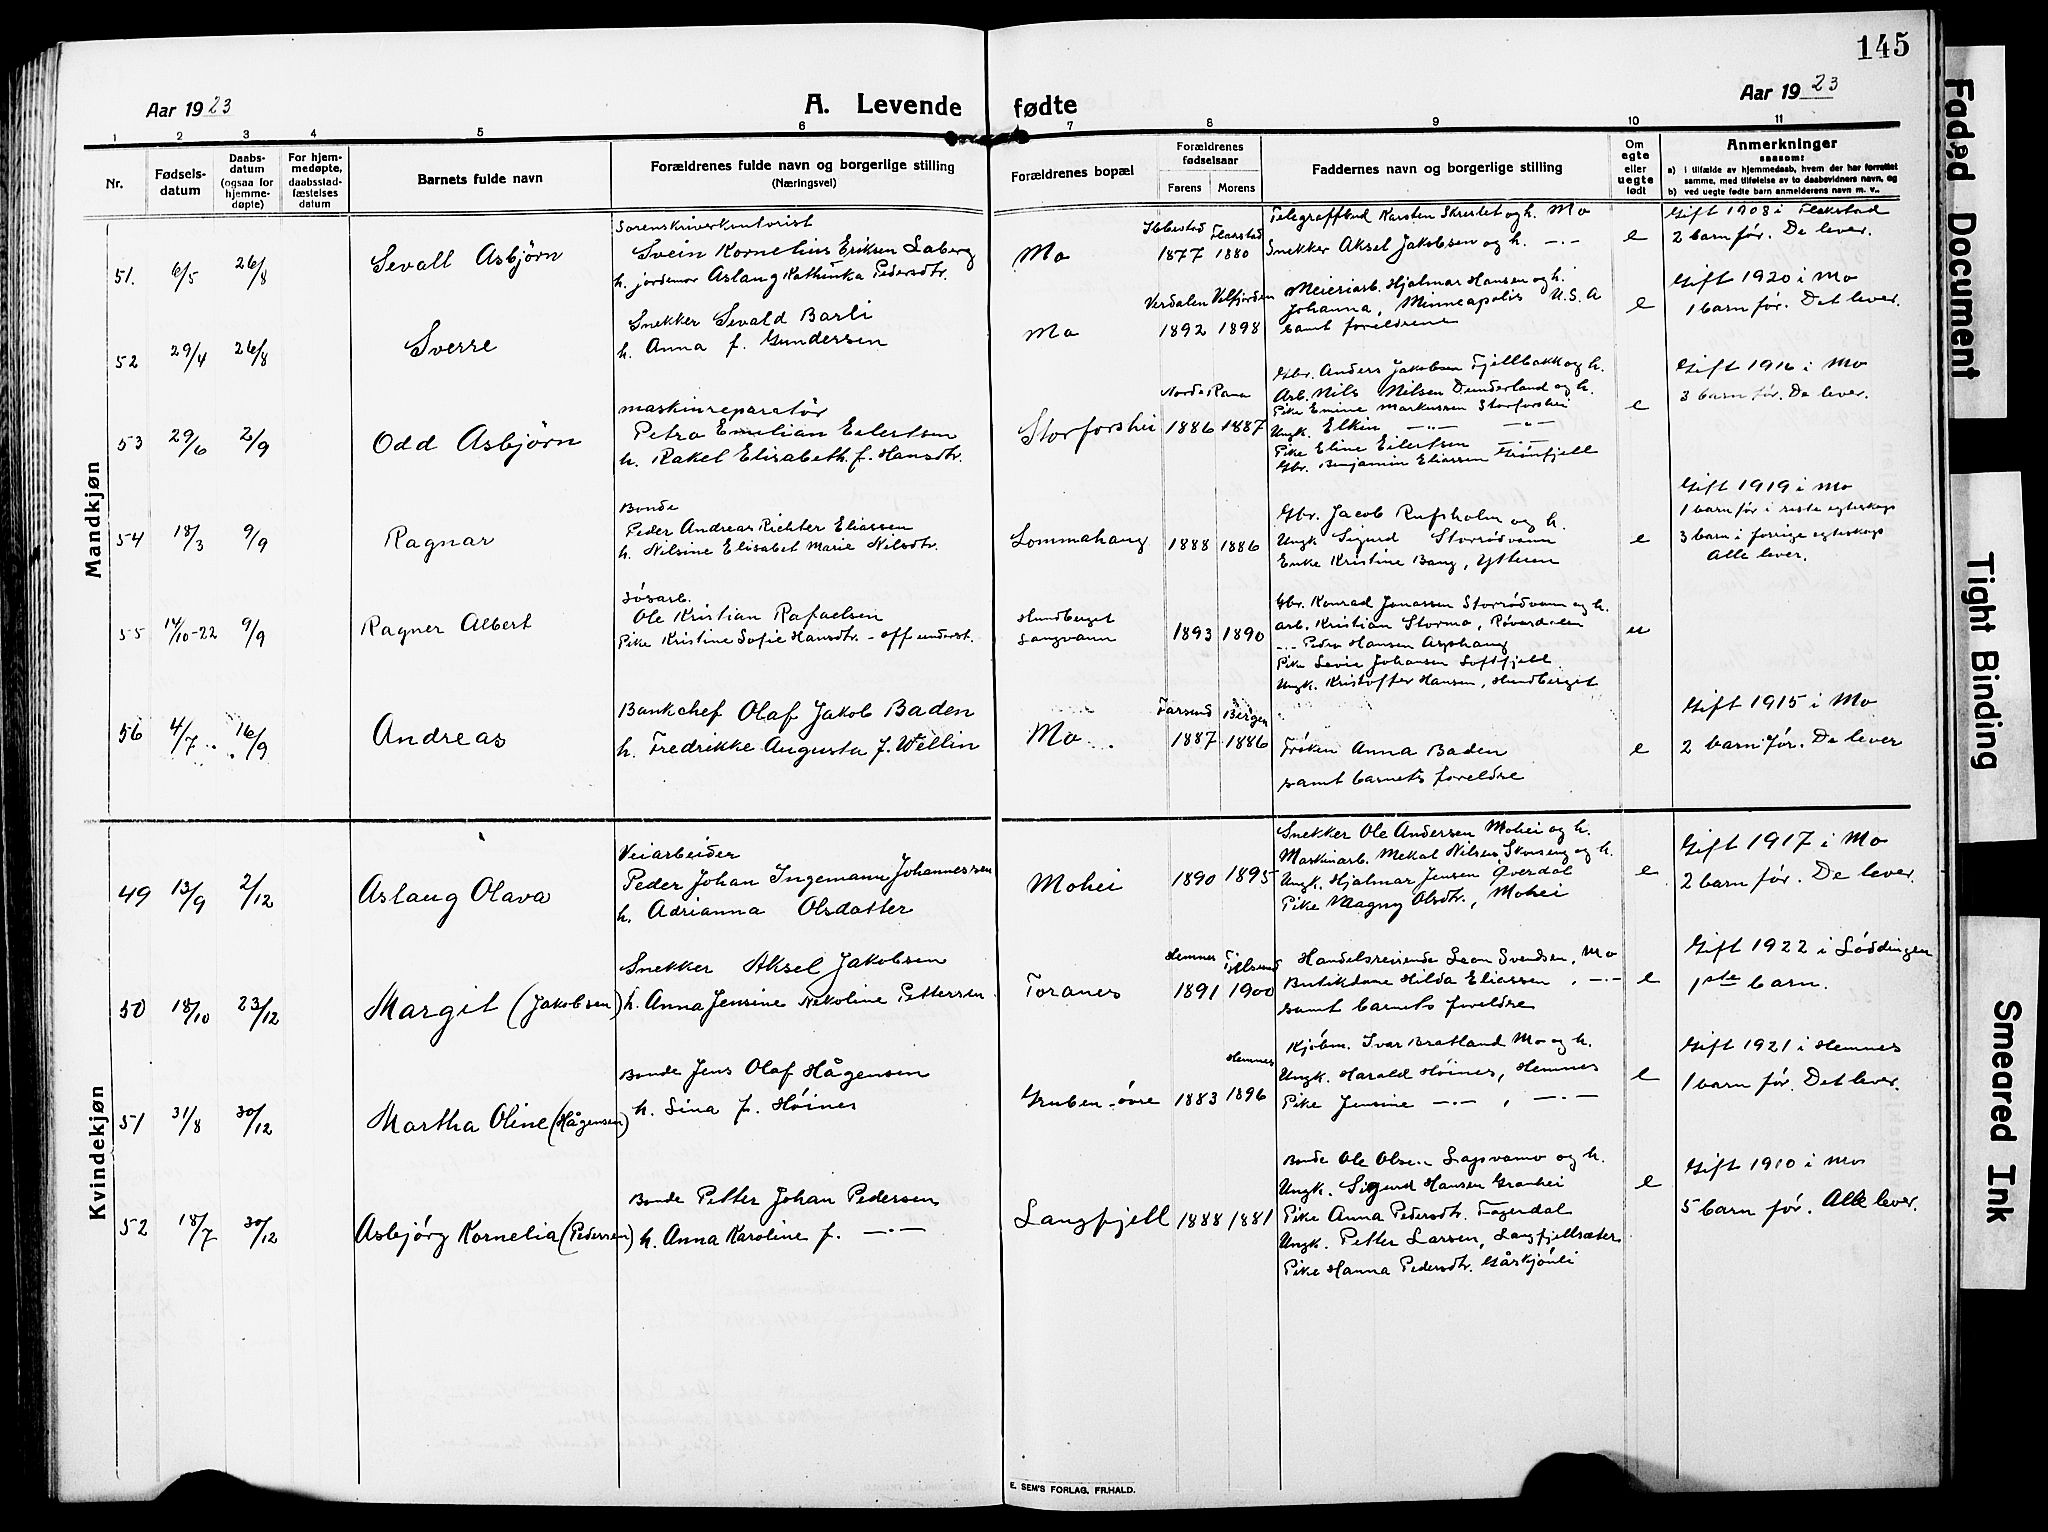 145
Aar 1923
A. Levende fødte
Aar 1923
1 2 3 4 5 6 7 8 9 10 11
Nr.
Fødselsdatum
Daabsdatum (ogsaa for hjemmedøpte)
For hjemmedøpte, daabsstadfæstelses datum
Barnets fulde navn
Forældrenes fulde navn og borgerlige stilling
(Næringsvei)
Forældrenes bopæl
Forældrenes fødselsaar
Farens Morens
Faddernes navn og borgerlige stilling
Om egte eller uegte født
Anmerkninger
saasom:
a) i tilfælde av hjemmedaab, hvem der har forrettet
samme, med tilføielse av to daabsvidners navn, og
b) ved uegte fødte barn anmelderens navn m. v..
Mandkjøn
51. 6/5 26/8 Sevall Asbjörn
Sorenskriverkontorist
Svein Kornelius Eriksen Laberg
h. jordemor Aslaug Kathinka Pedersdtr.
Mo
Ibbestad Harstad
1877 1880
Telegrafbud Karsten Skrestet og h. Mo
Snekker Aksel Jakobsen og h. -.-
e
Gift 1908 i Flakstad
2 barn før. De lever.
52 29/4 26/8 Sverre
Snekker Sevald Barli
h. Anna f. Gundersen
Mo
Verdalen Velfjorden
1892 1898
Meieriarb. Hjalmar Hansen og h.
Johanna, Minneapolis U.S.A
samt foreldrene
e
Gift 1920 i Mo
1 barn før. Det lever.
53 29/6 2/9 Odd Asbjörn
maskinreparatör
Petro Emilian Eilertsen
h. Rakel Elisabeth f. Hansdtr.
Storforshei
Nordre Rana
1886 1887
Gbr. Anders Jakobsen Fjellbakk og h.
Arb. Nils Nilsen Dunderland og h.
Pike Emine Markussen Storforshei
Ungk. Elkin -"- -"-
Pike Eline Eilertsen -"-
Gbr. Benjamin Eliassen Grønfjell
e
Gift 1916 i Mo
3 barn før. De lever.
54 18/3 9/9 Ragnar
Bonde
Peder Andreas Richter Eliassen
h. Nilsine Elisabet Marie Nilsdtr.
Lommahaug
1888 1886
Gbr. Jacob Rufsholm og h.
Ungk. Sigurd Storrødvann
Enke Kristine Bang, Ytteren
e
Gift 1919 i Mo
1 barn før i siste egteskap
3 barn i forrige egteskap
Alle lever.
55 14/10-22 9/9 Ragner Albert
Ole Kristian Rafaelsen
Pike Kristine Sofie Hansdtr. - off. underst.
Hundberget
Langvann
1893 1890
Gbr. Konrad Jonassen Storrödvann og h.
arb. Kristian Stormo, Røvasdalen
-.- Pedro Hansen Asphaug
Pike Levie Johansen Loftfjell.
Ungk. Kristoffer Hansen, Hundberget
u
56 4/7 16/9 Andreas
Bankchef Olaf Jakob Baden
h. Fredrikke Augusta f. Wellin
Mo
Farsund Bergen
1887 1886
Frøken Anna Baden
samt barnets foreldre
e
Gift 1915 i Mo
2 barn før. De lever
Kvindekjøn
49 13/9 2/12 Aslaug Olava
Veiarbeider
Peder Johan Ingemann Johannessen
h. Adrianna Olsdatter
Mohei
1890 1895
Snekker Ole Andersen Mohei og h.
Maskinarb. Mekal Nilsen, Skonseng og h.
Ungk. Hjalmar Jensen Øverdal
Pike Magny Olsdtr., Mohei
e
Gift 1917 i Mo
2 barn før. De lever.
50 18/10 23/12 Margit (Jakobsen)
Snekker Aksel Jakobsen
h. Anna Jensine Nekoline Pettersen
Toranes
Hemnes
1891 1900
Handelsreisende Leon Svendsen, Mo
Butikdame Hilda Eliassen, -.-
samt barnets foreldre
e
Gift 1922 i Løddingen
1ste barn.
51 31/8 30/12 Martha Oline (Hågensen)
Bonde Jens Olaf Hågensen
h. Lina f. Höines
Gruben - övre
Hemnes
1883 1896
Kjöbm. Ivar Bratland Mo og h.
Ungk. Harald Höines, Hemnes
Pike Jensine -.- , -.-
e
Gift 1921 i Hemnes
1 barn før. Det lever.
52 18/7 30/12 Asbjörg Kornelia (Pedersen)
Bonde Petter Johan Pedersen
h. Anna Karoline f. -.-
Langfjell
1888 1881
Bonde Ole Olsen Lapvamo og h.
Ungk. Sigurd Hansen Granhei
Pike Anna Pedersdtr. Fagerdal
Ungk. Petter Larsen, Langfjellsæter
Pike Hanna Pedersdtr.
e
Gift 1910 i Mo
5 barn før. Alle lever.
E. SEM'S FORLAG, FR.HALD.
Faded Document
Tight Binding
Smeared Ink